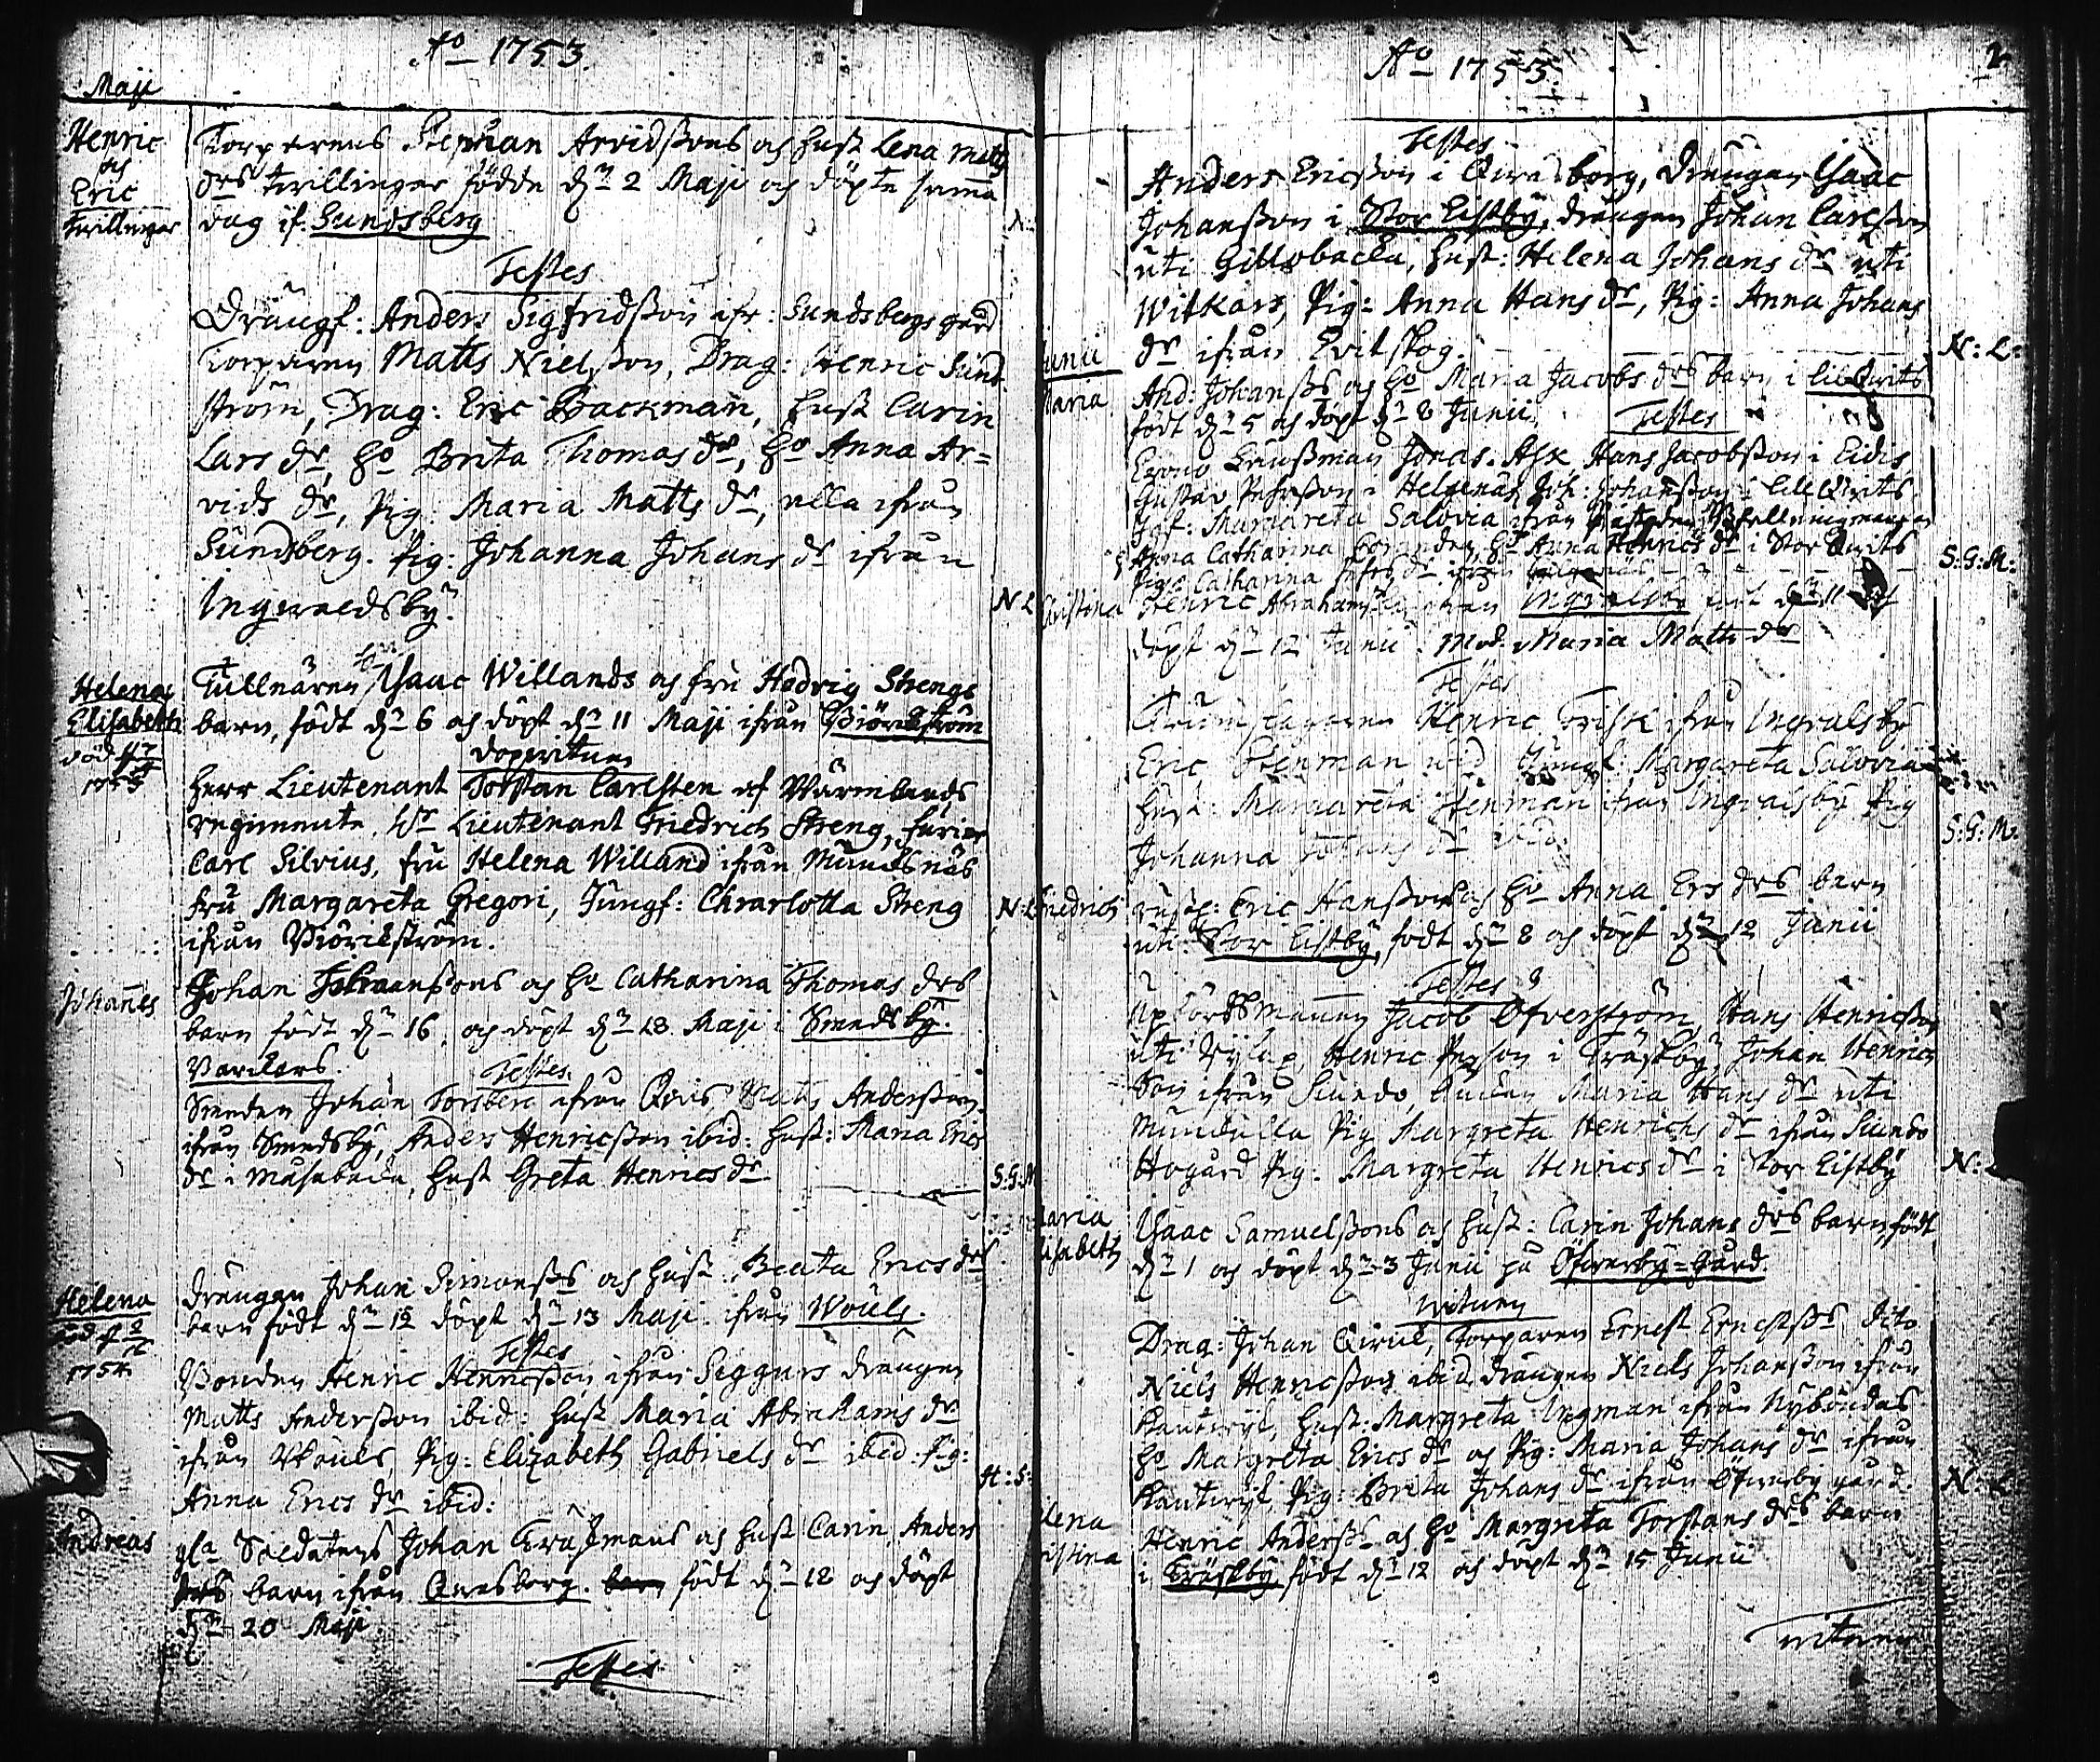 Ao 1753
Maji
Henric
och
Eric
Twillingar
Torparens Stephan Arvidssons och hust Lena Matts
drs twillingar födde dn 2 Maji och döpte samma
dag if. Sundsberg
Testes
Drängf: Anders Sigfridsson ifr: Sundsbergs gård
Torparen Matts Nielsson, Drag: Henric Sund
ström, Drag: Eric Backman, hust Carin
Lars dr, ho Brita Thomas dr, ho Anna Ar=
vids dr, Pig: Maria Matts dr, alla ifrån
Sundsberg. Pig: Johanna Johans dr ifrån
Ingwaldsby
N L
Helena
Elisabeth
död
Tullnären Isaac Willands och fru Hedvig Strengs
barn, födt dn 6 och döpt dn 11 Maji ifrån Björckström
dopvitnen
Herr Lieutenant Torstan Carlsten af Wärmlands
regimente. Hr Lieutenant Friedrich Streng, furier
Carl Silvius, fru Helena Willand ifrån Munksnäs
fru Margareta Gregori, Jungf: Chrarlotta Streng
ifrån Björckström.
N: L
Johannes
Johan Johanssons och ho Catharina Thomas drs
barn födt dn 16. och döpt dn 18. Maji i Smedsby.
Testes
Smeden Johan Forsberg ifrån Matts Andersson
ifrån Smedsby, Anders Henricsson ibid: hust: Maria Erics
dr i Masabacka, hust Greta Henrics dr
S: G: M
Helena
död
1754
drängen Johan Simonss och hust: Beata Erics drs
barn födt dn 12 döpt dn 13 Maji. ifrån Wouls.
Testes
Bonden Henric Henricsson ifrån Seggurs drängen
Matts Andersson ibid: hust Maria Abrahams dr
ifrån Wouls, Pig: Elizabeth Gabriels dr ibid. Pig:
Anna Erics dr ibid:
H: S:
Andreas
gla Soldatens Johan Trussmans och hust Carin Anders
drs barn ifrån Qwasborg. födt dn 18 och döpt
dn 20 Maji
Testes
Ao 1753
2
Testes
Anders Ericsson i Qwasborg, Drängen Isaac
Johansson i Stor Eistby, drängen Johan Carlsson
uti Gillobacka, hust: Helena Johans dr uti
Witkärs, Pig: Anna Hans dr, Pig: Anna Johans
dr ifrån Evitskog.
N: L:
Junii
Maria
And: Johanss och ho Maria Jacobs drs barn i Lill Qwits
födt dn 5 och döpt dn 8 Junii.
Testes
Crono Länssman Jonas. Ask, Hans Jacobsson i Eidis
Gustav Pehrsson i Helgenäs, Joh: Johansson i Lill Qwits
Jgf: Margareta Salovia ifrån
Anna Catharina ho Anna Henrics dr i Stor Qwits
Piga Catharina
S: G: M:
Christina
Henric Abrahamss ifrån Ingvalsby födt dn 11 och
döpt dn 12 Junii. Mod. Maria Matts dr
Testes
Trumslagaren Henric Frisk ifrån Ingvalsby
Eric Stenman ibid Jungf: Margareta Salovia
hust: Margareta Stenman ifrån Ingvalsby Pig
Johanna Johans dr ibid:
S: G: M:
Friedrich
rusth: Eric Hanssons och ho Anna Ers drs barn
uti Stor Eistby, födt dn 8 och döpt dn 12 Junii
Testes
Uppsörssmannen Jacob Öfverström, Hans Henricsson
uti Henric Persson i Träskby, Johan Henrics
son ifrån Siundo, änckan Maria Hans dr uti
Munckulla Pig Margreta Henrichs dr ifrån Siundo
Hogård Pig: Margreta Henrics dr i Stor Eistby
N: L
Maria
Elisabeth
Isaac Samuelssons och hust: Carin Johans drs barn, födt
dn 1 och döpt dn 3 Junii på Öfwerby=Gård.
witnen
Drag: Johan Torparen Ernest Ernestss, dito
Niels Henricsson ibid. drängen Niels Johansson ifrån
hust: Margreta Ingman ifrån Nybondas
ho Margreta Erics dr och Pig: Maria Johans dr ifrån
Pig: Brita Johans dr ifrån Öfwerby gård.
N: L
Lena
Christina
Henric Anderss och ho Margreta Torstans drs barn
i Träskby födt dn 12 och döpt dn 15 Junii
witnen